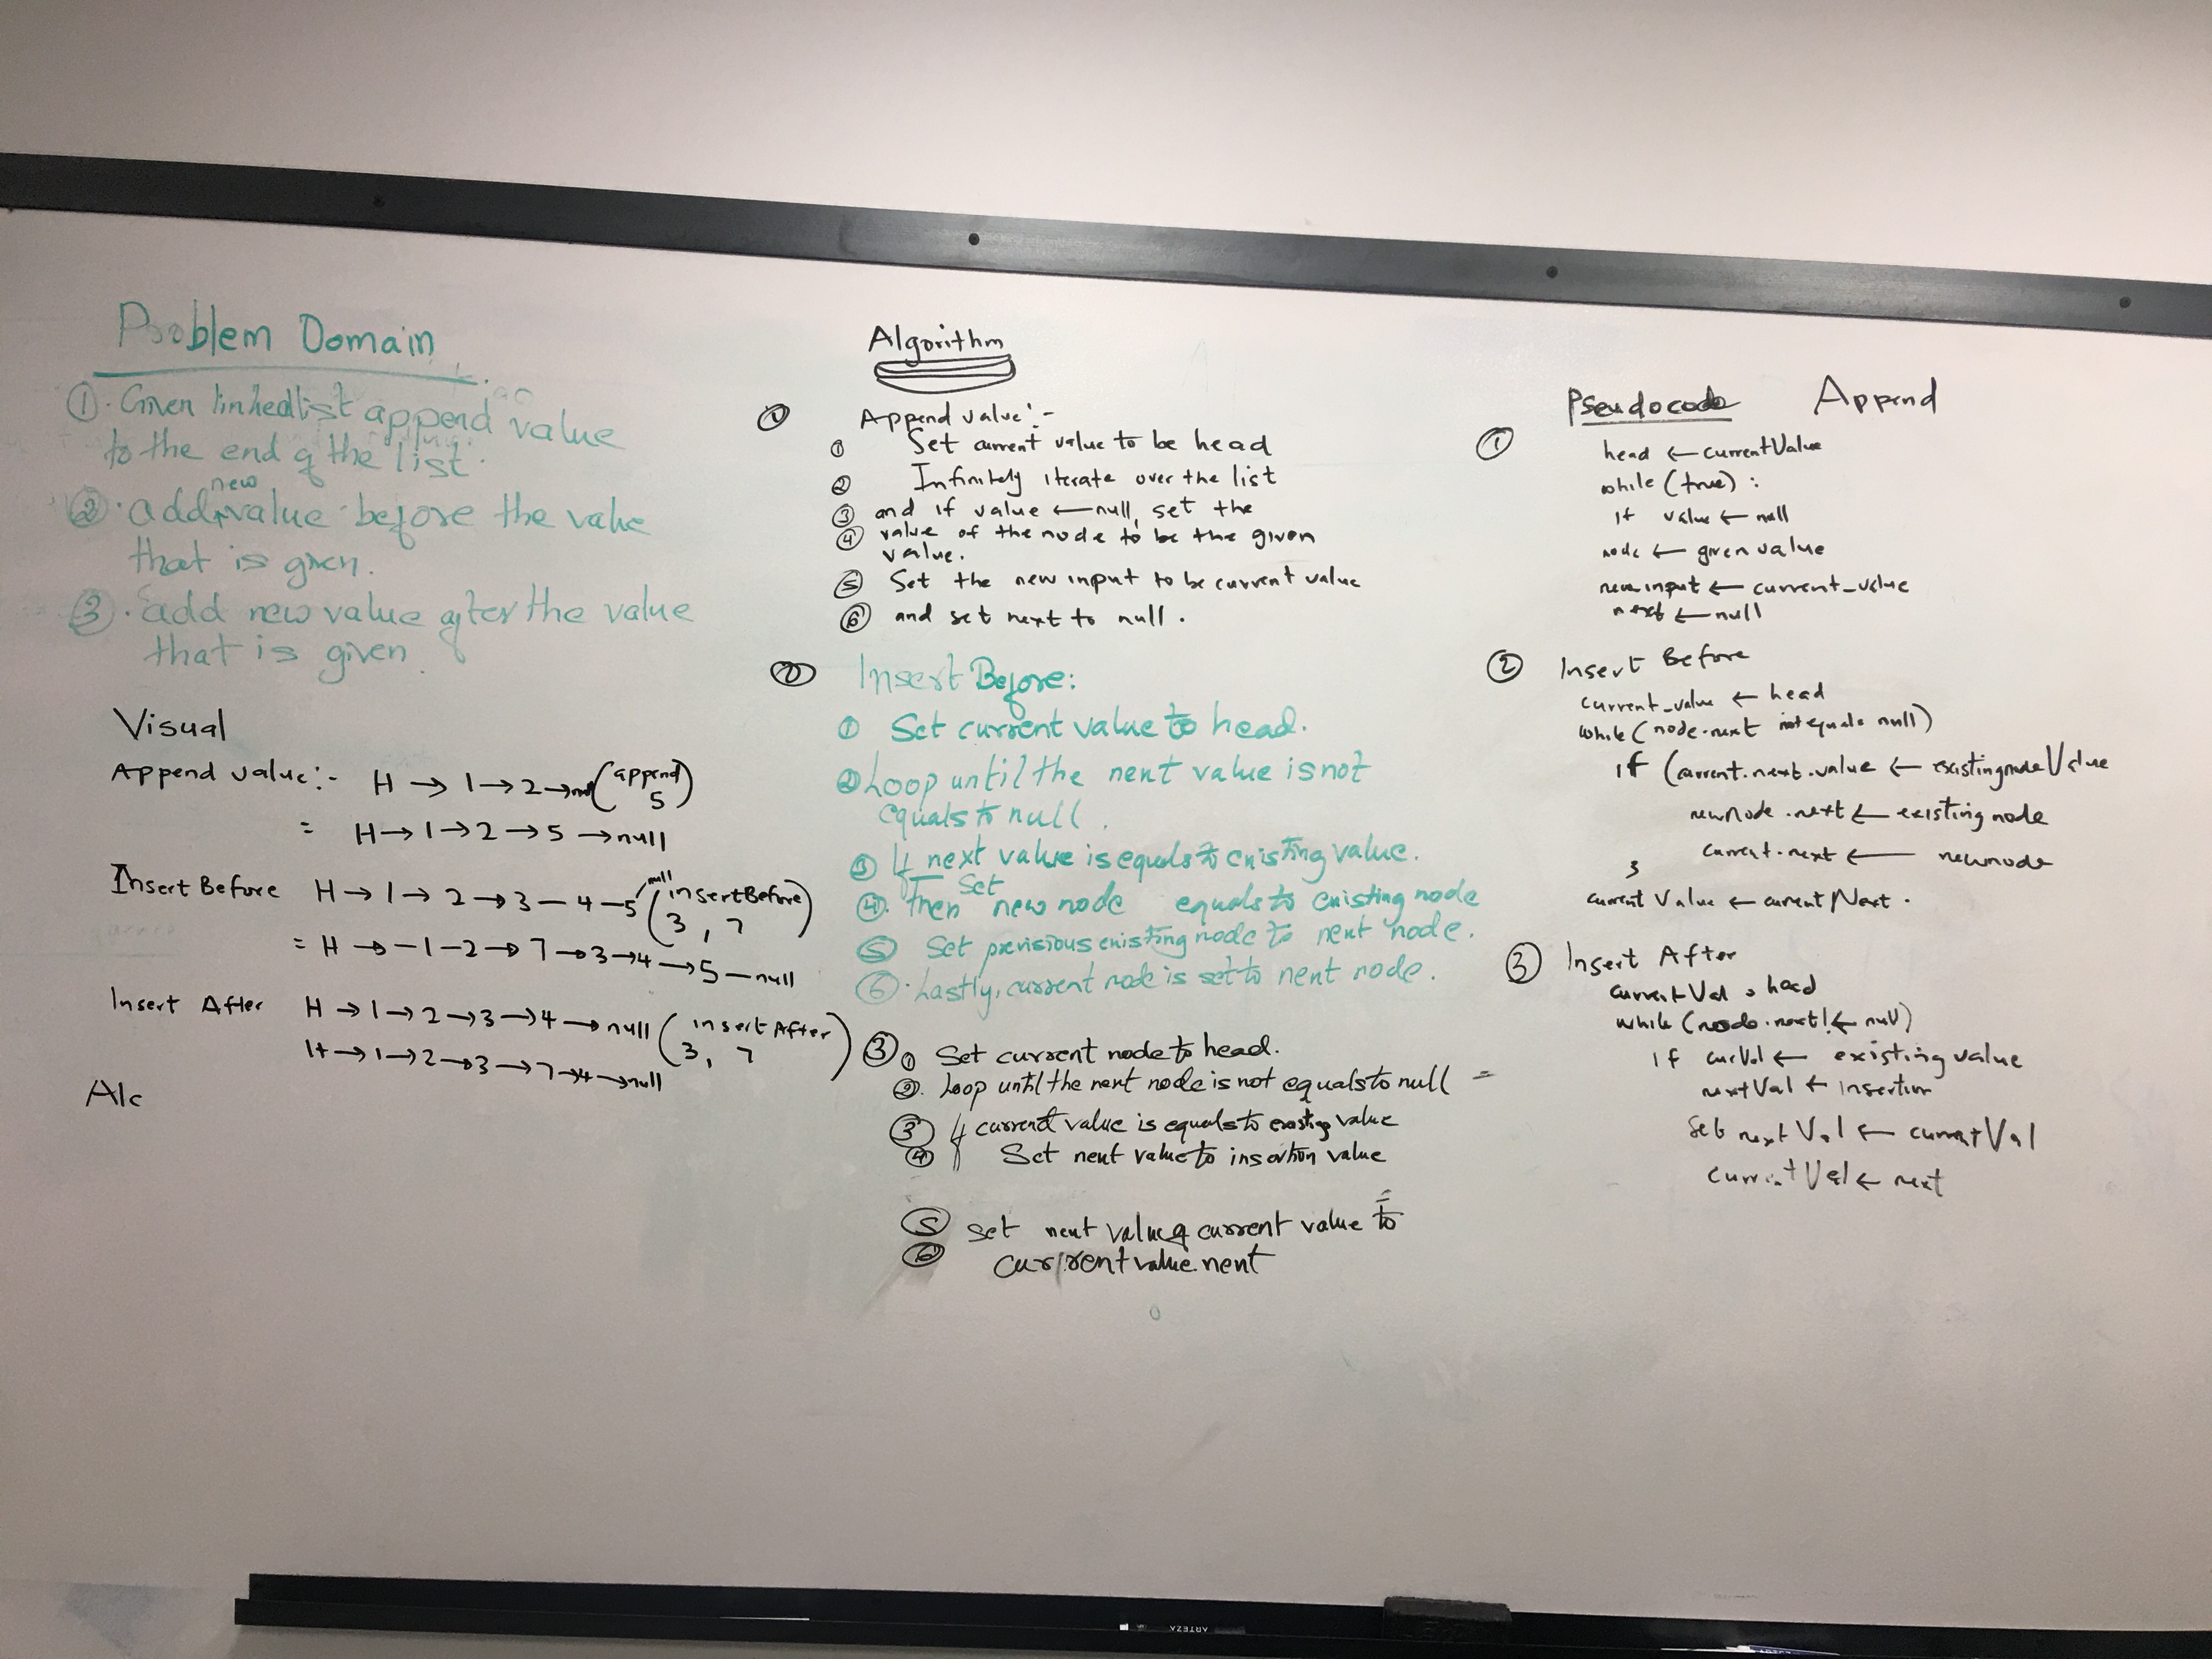 Problem Domain
① Given linkedlist append value
to the end of the list.
new
② add value before the value
that is given.
③ add new value after the value
that is given.
Visual
Append value:- H → 1 → 2 → (append 5)
= H → 1 → 2 → 5 → null
Insert Before H → 1 → 2 → 3 — 4 — 5 null (insertBefore 3, 7)
= H → — 1 — 2 → 7 → 3 → 4 → 5 — null
Insert After H → 1 → 2 → 3 → 4 → null (insertAfter 3, 7)
H → 1 → 2 → 3 → 7 → 4 → null
Alc
Algorithm
① Append value:-
① Set current value to be head
② Infinitely iterate over the list
③ and if value ← null, set the
④ value of the node to be the given
value.
⑤ Set the new input to be current value
⑥ and set next to null.
② Insert Before:
① Set current value to head.
② Loop until the next value is not
equals to null.
③ If next value is equals to existing value.
④ Then set new node equals to existing node
⑤ Set previsious existing node to next node.
⑥ Lastly, current node is set to next node.
③ ① Set current node to head.
② Loop until the next node is not equals to null =
③ If current value is equals to existing value
④ Set next value to insertion value
⑤ set next value of current value to
⑥ current value.next
Pseudocode Append
① head ← currentValue
while (true) :
if value ← null
node ← given value
new input ← current_value
next ← null
② Insert Before
current_value ← head
while (node.next not equals null)
if (current.next.value ← existingnodeValue
newNode.next ← existing node
current.next ← newnode
}
current Value ← current Next.
③ Insert After
currentVal = head
while (node.next != ← null)
if curVal ← existing value
nextVal ← insertion
Set nextVal ← currentVal
currentVal ← next
ARTEZA